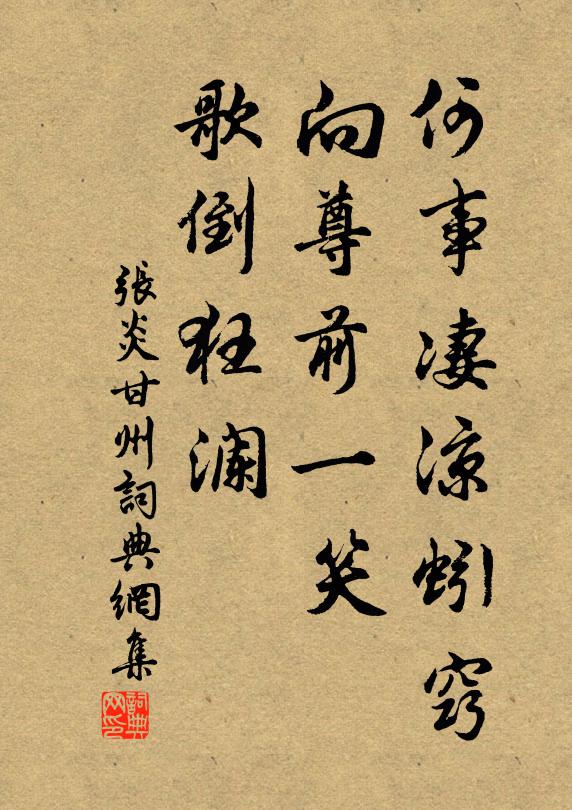 何事凄涼蚓竅
向尊前一笑
歌倒狂瀾
張炎甘州詞典網集
詞典網印